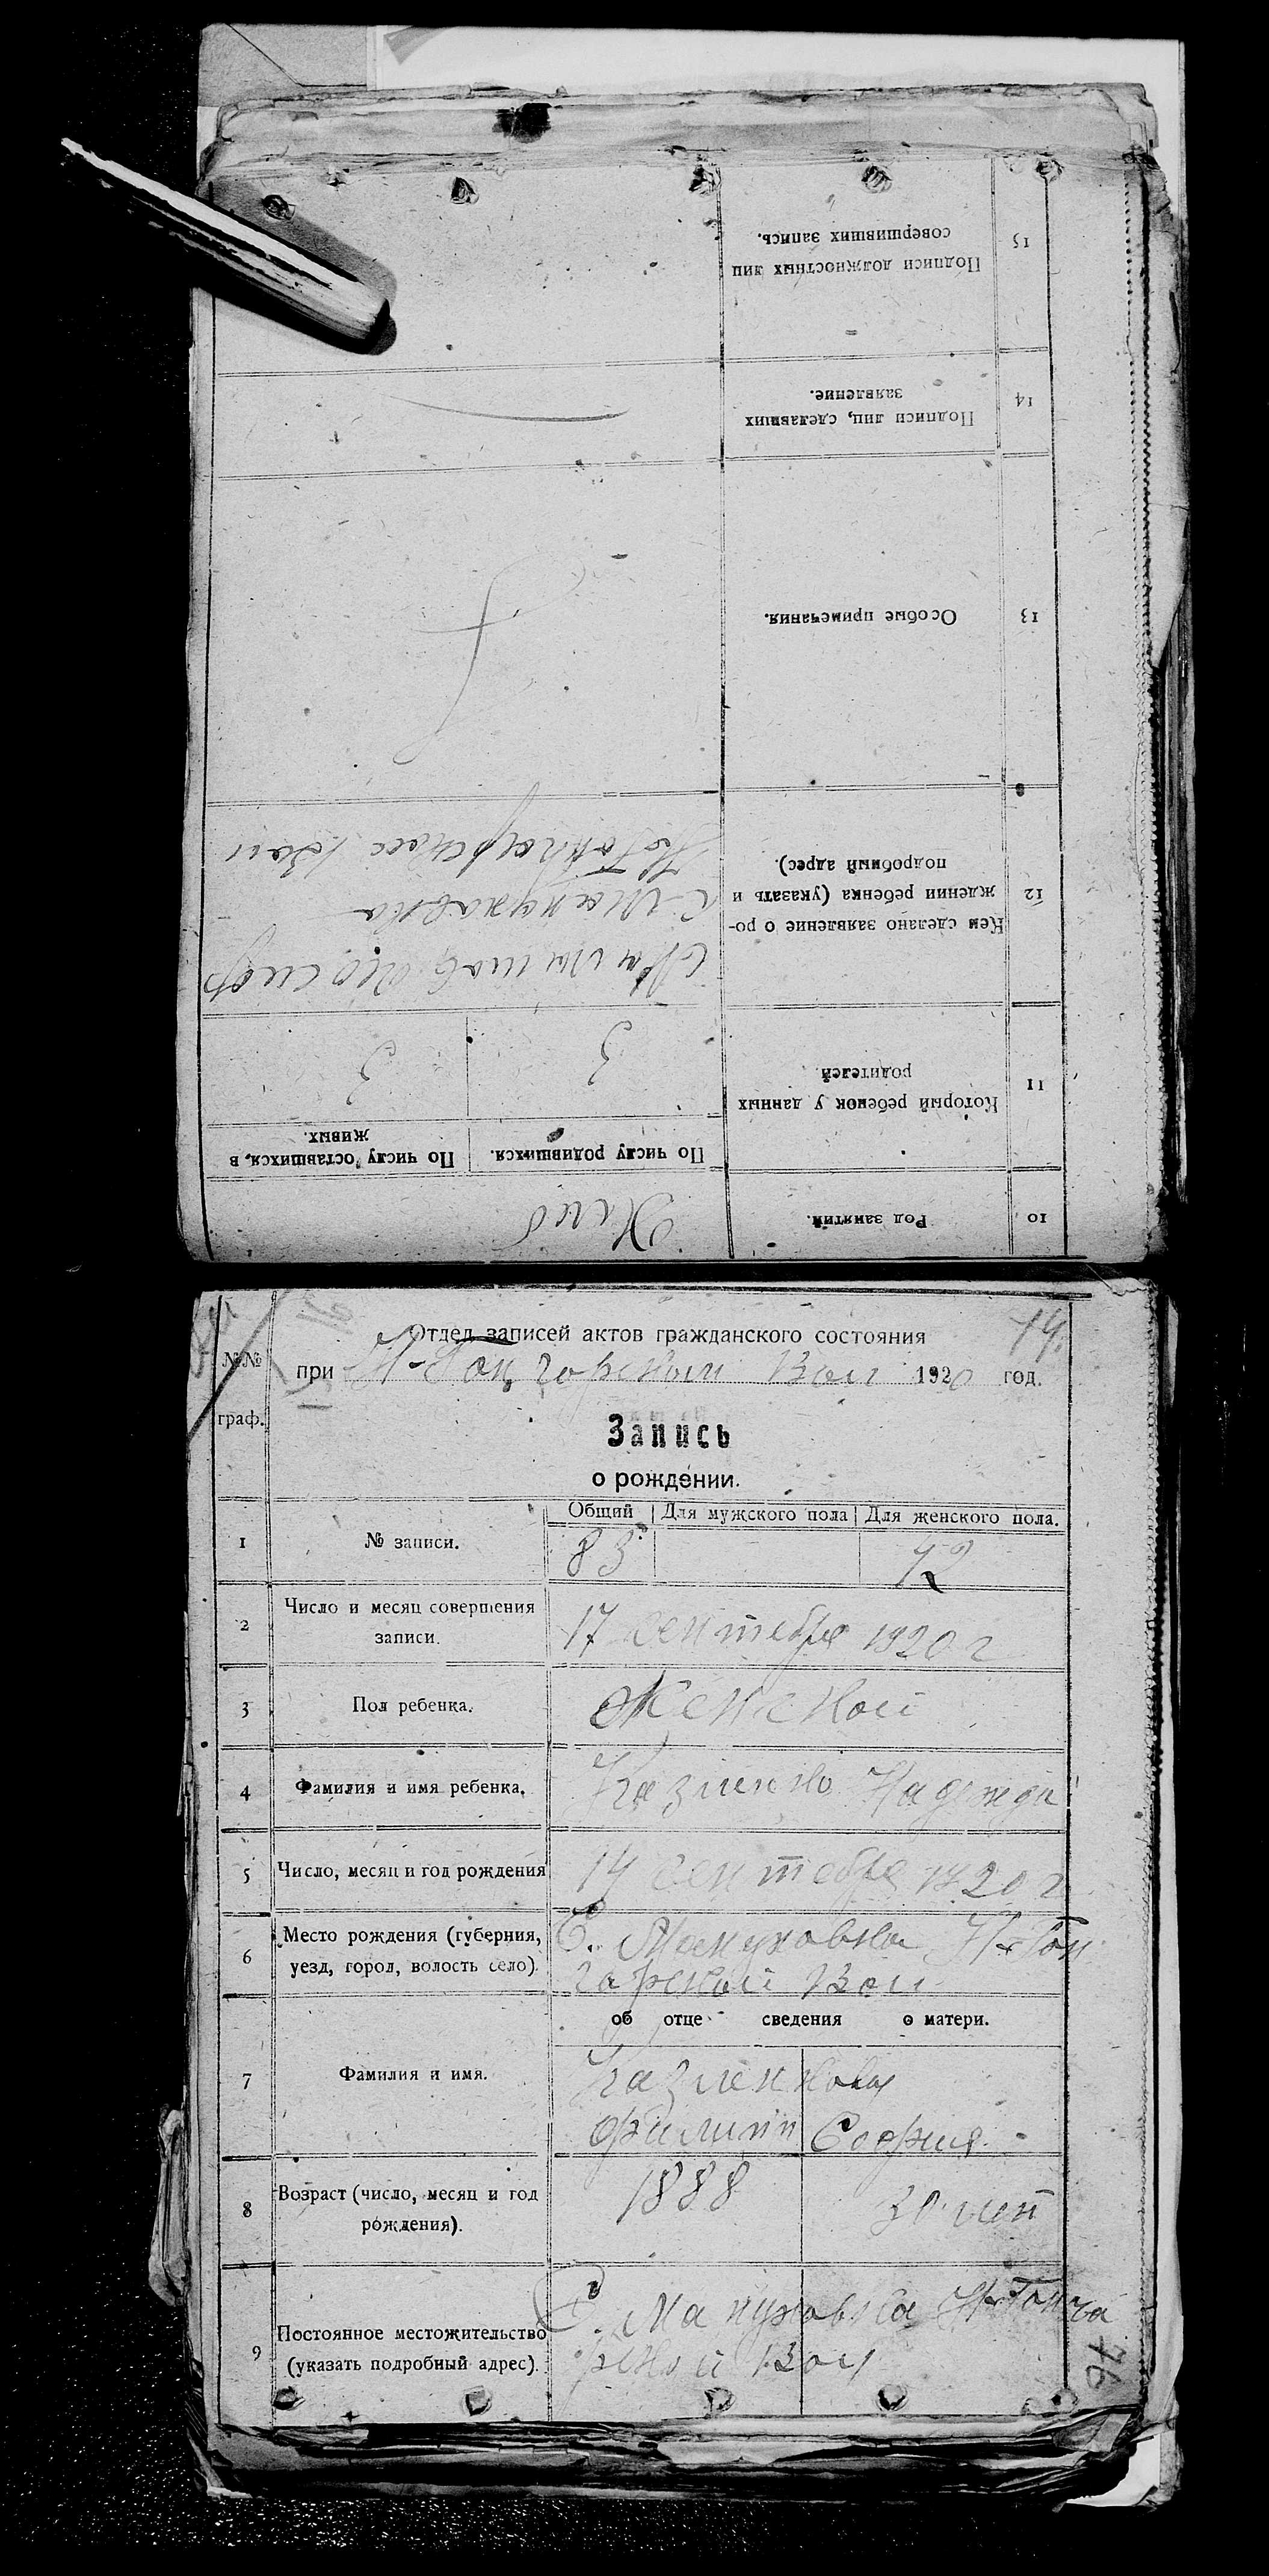 15
Подписи должностных лиц
совершивших запись.
14
Подписи лиц, сделавших
заявление.
13
Особые примечания.
12
Кем сделано заявление о ро-
ждении ребенка (указать и
подробный адрес).
с. Мануховка
11
Который ребенок у данных
родителей.
По числу родившихся.
По числу оставшихся, в
живых.
3
3
10
Род занятий.
Хлеб
14.
Отдел записей актов гражданского состояния
№№
граф.
при Вол 1920 год.
Запись
о рождении.
Общий Для мужского пола Для женского пола.
1 № записи. 83 42
2 Число и месяц совершения
записи.
17 сентебре 1920 г
3 Пол ребенка. Женской
4 Фамилия и имя ребенка. Надежда
5 Число, месяц и год рождения 14 сентебре 1920 г
6 Место рождения (губерния,
уезд, город, волость село).
С. Мануховка Н-Гон
чарной Вол
об отце сведения о матери.
7 Фамилия и имя.
Филипп София
8 Возраст (число, месяц и год
рождения).
1888 30 лет
9 Постоянное местожительство
(указать подробный адрес).
С. Мануховка Н-Гонча
рной Вол
76